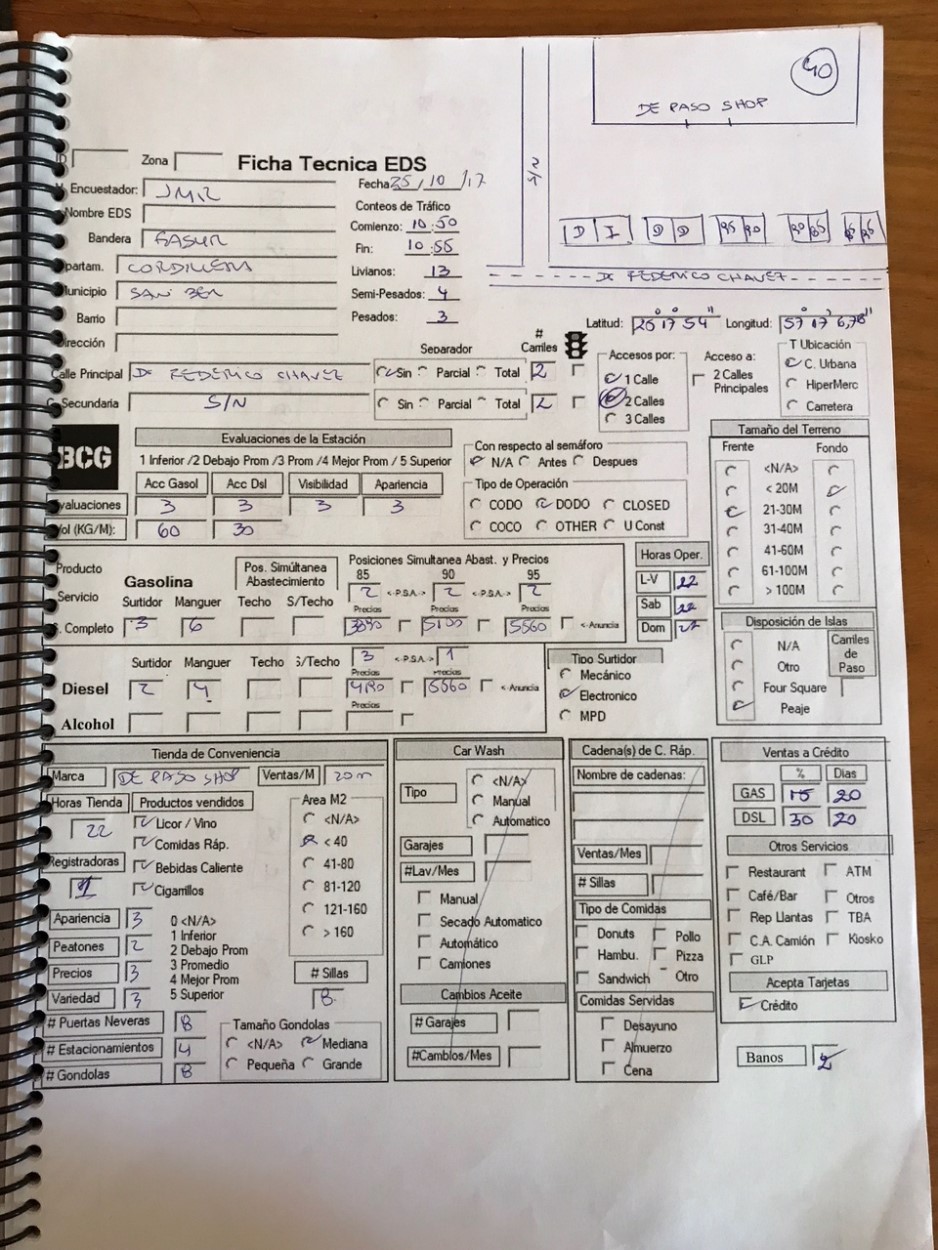 40
DE PASO SHOP
S/N
D I D D 95 90
Dr FEDERICO CHAVEZ
Zona
Ficha Tecnica EDS
Fecha 25/10/17
Encuestador: JMR
Conteos de Tráfico
Nombre EDS
Comienzo: 10:50
Bandera GASUR
Fin: 10:55
partam. CORDILLERA
Livianos: 13
unicipio SAN BER
Semi-Pesados: 4
Barrio
Pesados: 3
irección
Latitud: 25 17 54" Longitud: 57° 17' 6,78"
Separador # Carriles
Accesos por: Acceso a: T Ubicación
Calle Principal Dr FEDERICO CHAVEZ Sin Parcial Total 2
1 Calle 2 Calles Principales C. Urbana
HiperMerc
Secundaria S/N Sin Parcial Total 2
2 Calles
3 Calles
Carretera
BCG
Evaluaciones de la Estación
1 Inferior /2 Debajo Prom /3 Prom /4 Mejor Prom / 5 Superior
Acc Gasol Acc Dsl Visibilidad Apariencia
valuaciones 3 3 3 3
ol (KG/M): 60 30
Con respecto al semáforo
N/A Antes Despues
Tipo de Operación
CODO DODO CLOSED
COCO OTHER U Const
Tamaño del Terreno
Frente Fondo
<N/A>
< 20M
21-30M
31-40M
41-60M
61-100M
> 100M
Producto
Servicio
Gasolina
Pos. Simúltanea Abastecimiento
Posiciones Simultanea Abast. y Precios
85 90 95
2 <-P.S.A.-> 2 <-P.S.A.-> 2
Surtidor Manguer Techo S/Techo Precios Precios Precios
. Completo 3 6 5560 <-Anuncia
Horas Oper.
L-V 22
Sab 22
Dom 22
Surtidor Manguer Techo S/Techo 3 <-P.S.A.-> 1
Precios Precios
Diesel 2 4 5560 <-Anuncia
Precios
Alcohol
Tipo Surtidor
Mecánico
Electronico
MPD
Disposición de Islas
N/A
Otro
Four Square
Peaje
Carriles de Paso
Tienda de Conveniencia
Marca DE PASO SHOP Ventas/M 20m
Horas Tienda Productos vendidos
22
Licor / Vino
Comidas Ráp.
Registradoras
1
Bebidas Caliente
Cigarrillos
Area M2
<N/A>
< 40
41-80
81-120
121-160
> 160
Apariencia 3
Peatones 2
Precios 3
Variedad 3
0 <N/A>
1 Inferior
2 Debajo Prom
3 Promedio
4 Mejor Prom
5 Superior
# Sillas
8
# Puertas Neveras 8
# Estacionamientos 4
# Gondolas 8
Tamaño Gondolas
<N/A> Mediana
Pequeña Grande
Car Wash
Tipo
<N/A>
Manual
Automatico
Garajes
#Lav/Mes
Manual
Secado Automatico
Automático
Camiones
Cambios Aceite
# Garajes
#Cambios/Mes
Cadena(s) de C. Ráp.
Nombre de cadenas:
Ventas/Mes
# Sillas
Tipo de Comidas
Donuts Pollo
Hambu. Pizza
Sandwich Otro
Comidas Servidas
Desayuno
Almuerzo
Cena
Ventas a Crédito
% Dias
GAS 15 20
DSL 30 20
Otros Servicios
Restaurant ATM
Café/Bar Otros
Rep Llantas TBA
C.A. Camión Kiosko
GLP
Acepta Tarjetas
Crédito
Banos 2